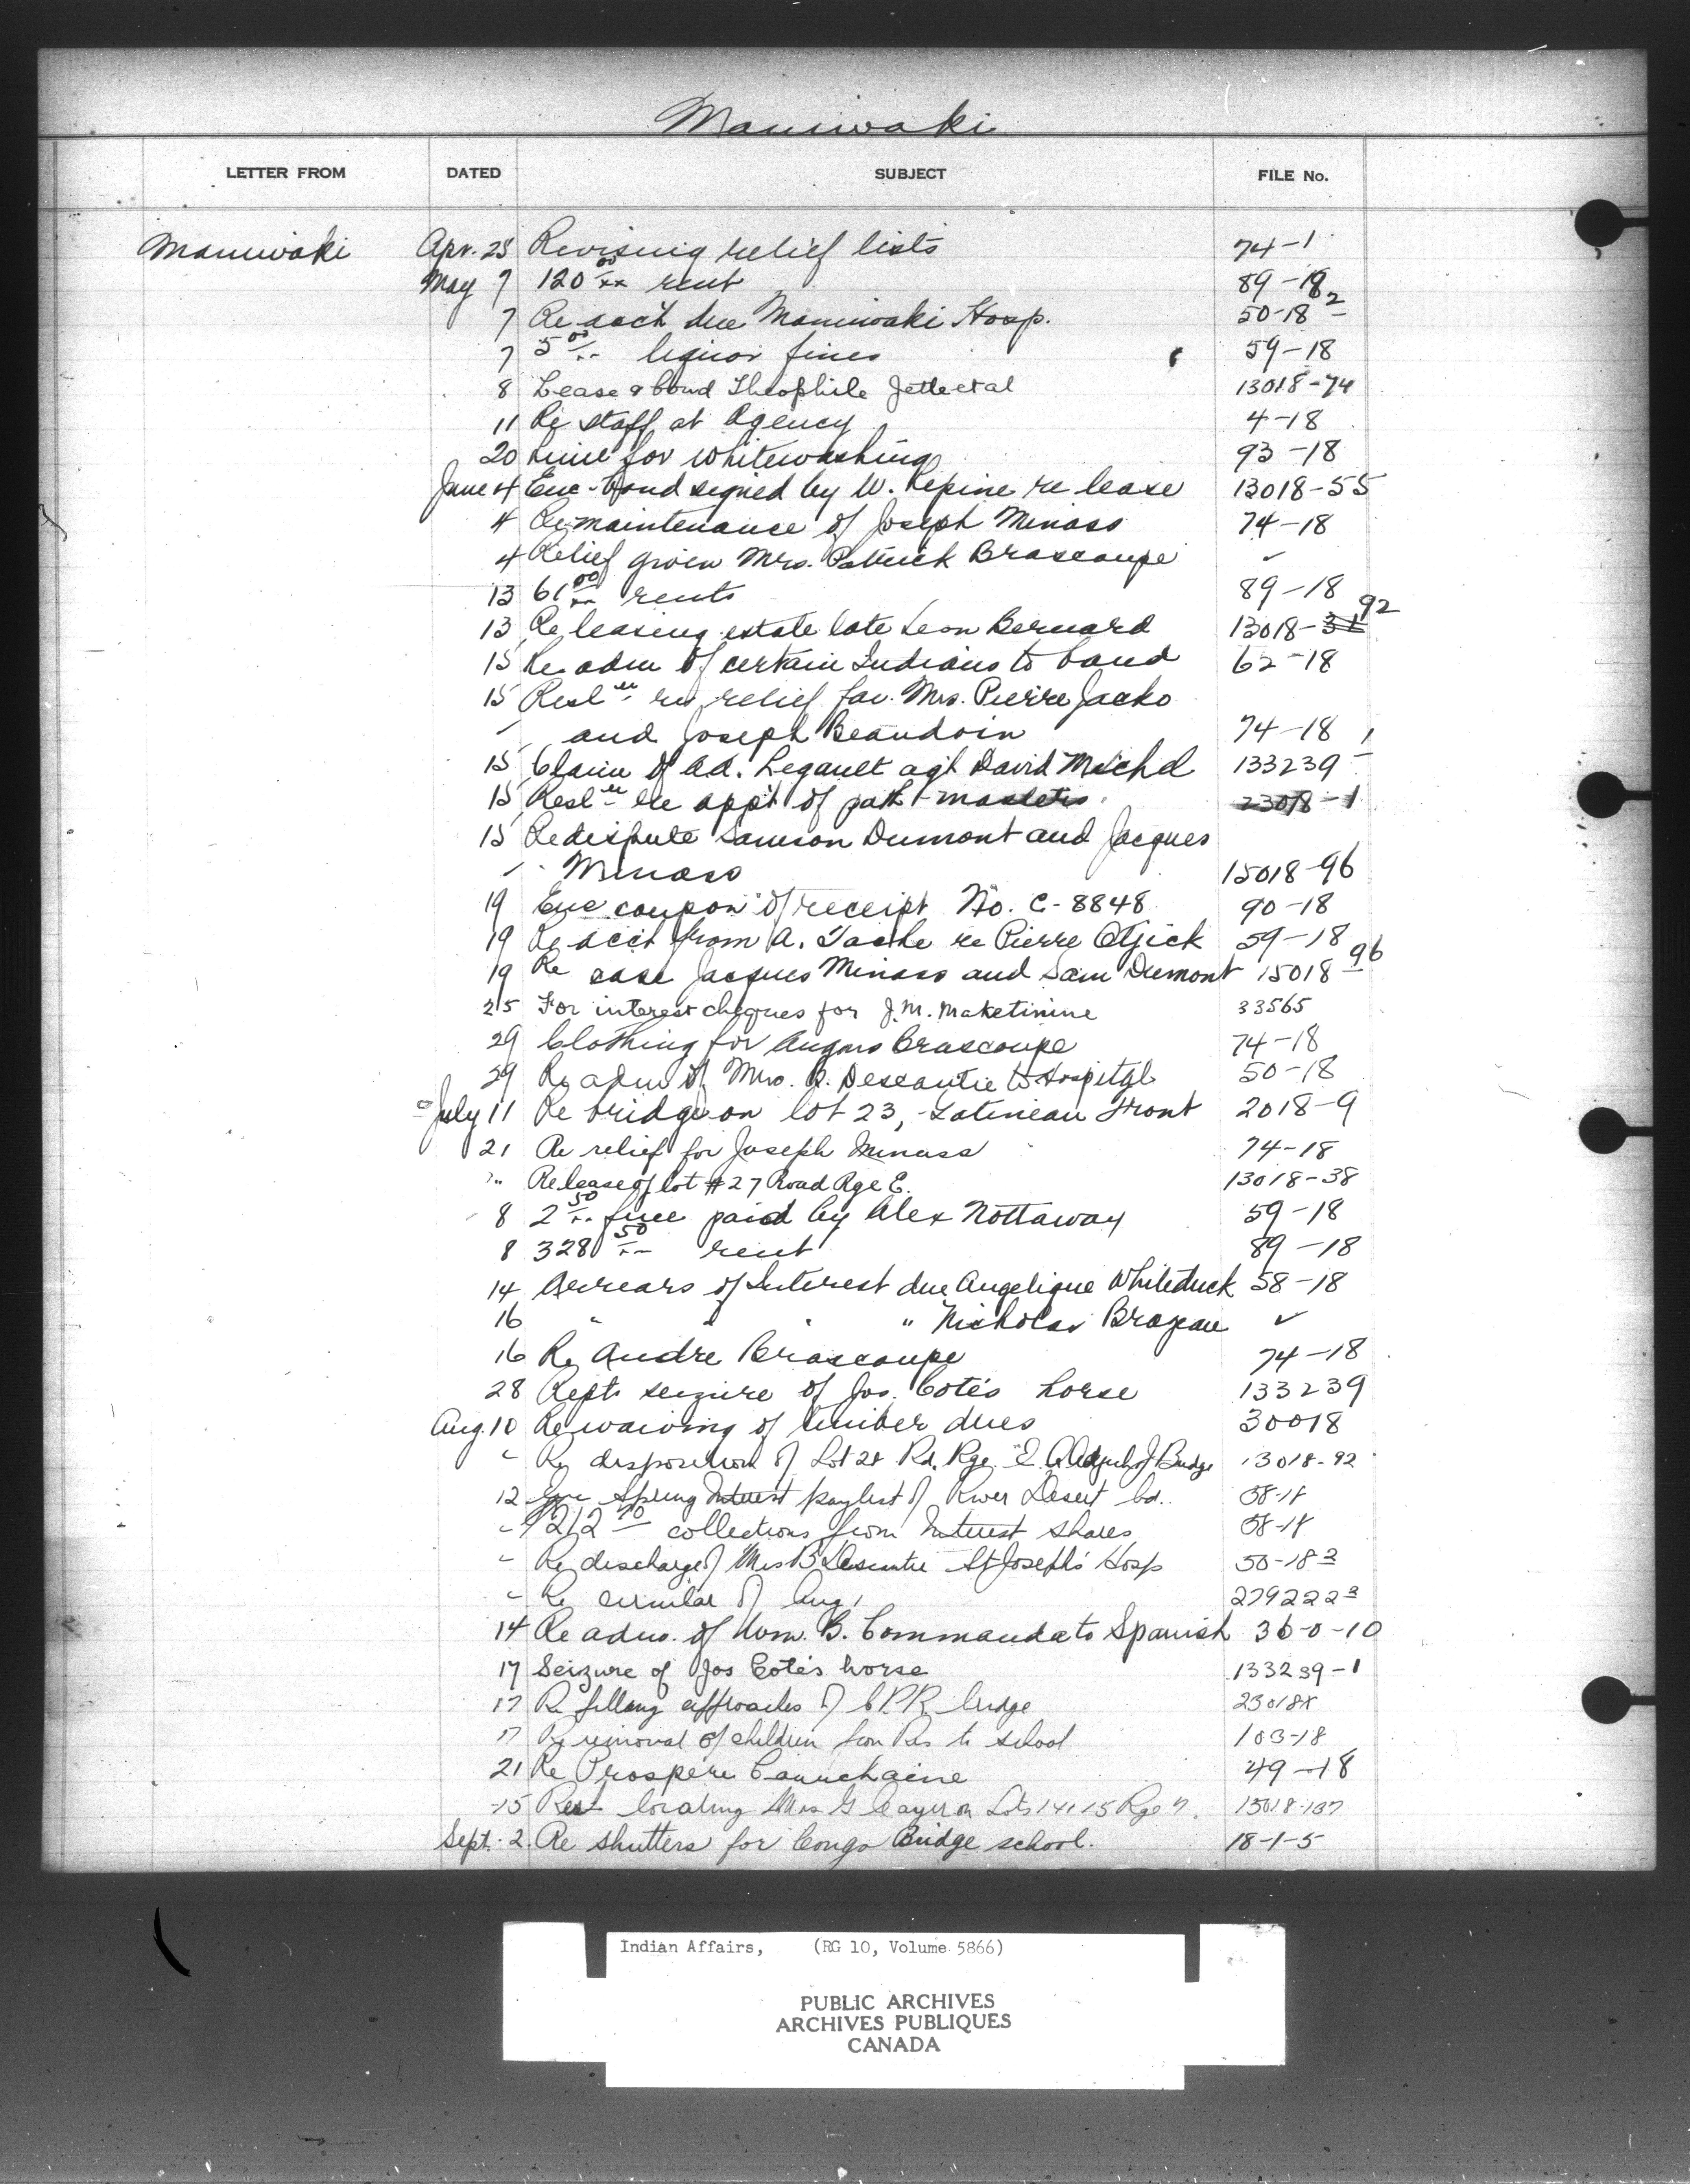 Maniwaki
LETTER FROM DATED SUBJECT FILE No.
Maniwaki Apr. 25 Revising relief lists 74-1
May 7 120 00/xx rent 89-18
7 Re acct due Maniwaki Hosp. 50-18 2
7 5 00/xx liquor fines 59-18
8 Lease & bond Theophile Jette et al 13018-74
11 Re staff at Agency 4-18
20 Lime for whitewashing 93-18
June 4 Enc. bond signed by W. Lepine re lease 13018-55
4 Re maintenance of Joseph Minass 74-18
4 Relief given Mrs. Patrick Brascoupe "
13 61 00/xx rents 89-18
13 Re leasing estate late Leon Bernard 13018-31 92
15 Re adm of certain Indians to band 62-18
15 Resl re relief fav. Mrs. Pierre Jacko
" and Joseph Beaudoin 74-18
15 Claim of Ad. Legault agt David Michel 133239
15 Resl re app't of path-masters 23018-1
15 Re dispute Samson Dumont and Jacques
" Minass 15018-96
19 Enc coupon of receipt No. C-8848 90-18
19 Re acct from A. Tache re Pierre Otjick 59-18
19 Re case Jacques Minass and Sam Dumont 15018-96
25 For interest cheques for J.M. Maketinine 33565
29 Clothing for Angus Brascoupe 74-18
29 Re adm of Mrs. B. Descantie to Hospital 50-18
July 11 Re bridge on lot 23, Gatineau Front 2018-9
21 Re relief for Joseph Minass 74-18
" Re lease of lot #27 Road Rge E. 13018-38
8 2 50/xx fine paid by Alex Nottaway 59-18
8 328 50/xx rent 89-18
14 Arrears of Interest due Angelique Whiteduck 58-18
16 " " " " Nicholas Brazeau "
16 Re Andre Brascoupe 74-18
28 Rept. seizure of Jos. Cote's horse 133239
Aug. 10 Re waiving of timber dues 30018
" Re disposition of Lot 28 Rd. Rge. "E" J Budge 13018-92
12 Spring Interest paylist of River Desert bd. 58-18
" 212 70 collections from Interest shares 58-18
" Re discharge of Mrs B Descantie St Joseph's Hosp 50-18 2
" Re circular of Aug 1 279222 3
14 Re adm. of Wm. B. Commanda to Spanish 36-0-10
17 Seizure of Jos Cote's horse 133239-1
17 Re filling approaches of C.P.R. bridge 23018
17 Re removal of children from Res to school 103-18
21 Re Prospere Caunchaine 49-18
15 locating Mrs G Cayer on Lots 14 & 15 Rge 7. 15018-137
Sept. 2 Re shutters for Congo Bridge school. 18-1-5
Indian Affairs, (RG 10, Volume 5866)
PUBLIC ARCHIVES
ARCHIVES PUBLIQUES
CANADA